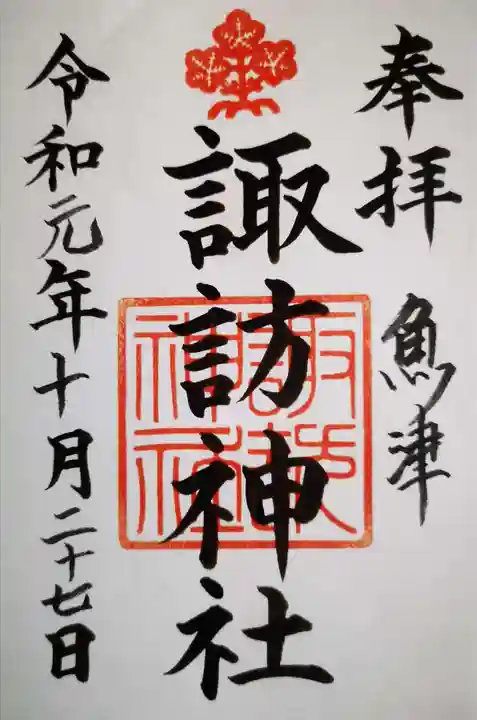 奉拝
魚津
諏訪神社
諏訪神社
令和元年十月二十七日